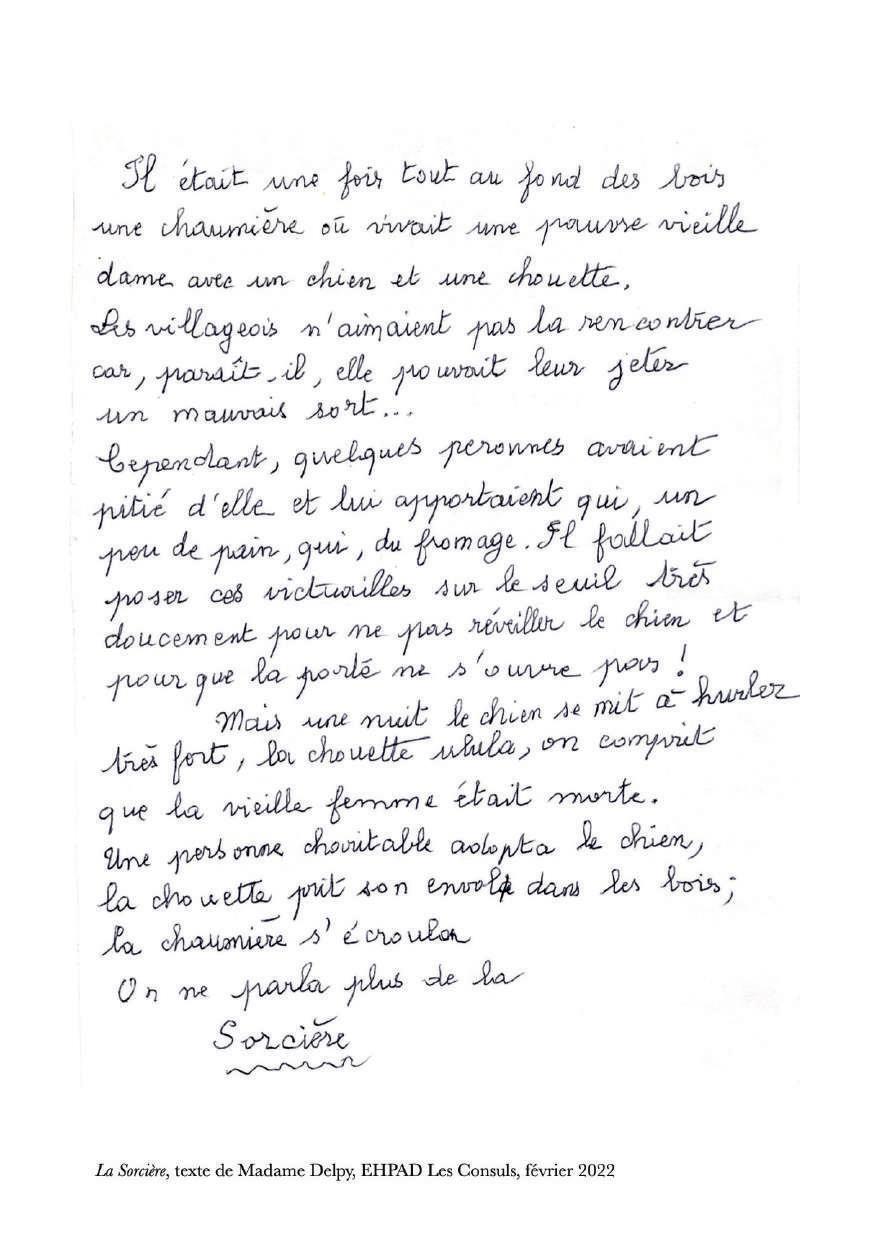 Il était une fois tout au fond des bois
une chaumière où vivait une pauvre vieille
dame avec un chien et une chouette.
Les villageois n'aimaient pas la rencontrer
car, paraît-il, elle pouvait leur jeter
un mauvais sort...
Cependant, quelques peronnes avaient
pitié d'elle et lui apportaient qui, un
peu de pain, qui, du fromage. Il fallait
poser ces victuailles sur le seuil très
doucement pour ne pas réveiller le chien et
pour que la porte ne s'ouvre pas !
Mais une nuit le chien se mit à hurler
très fort, la chouette ulula, on comprit
que la vieille femme était morte.
Une personne charitable adopta le chien,
la chouette prit son envol dans les bois;
la chaumière s'écroula
On ne parla plus de la
Sorcière
La Sorcière, texte de Madame Delpy, EHPAD Les Consuls, février 2022